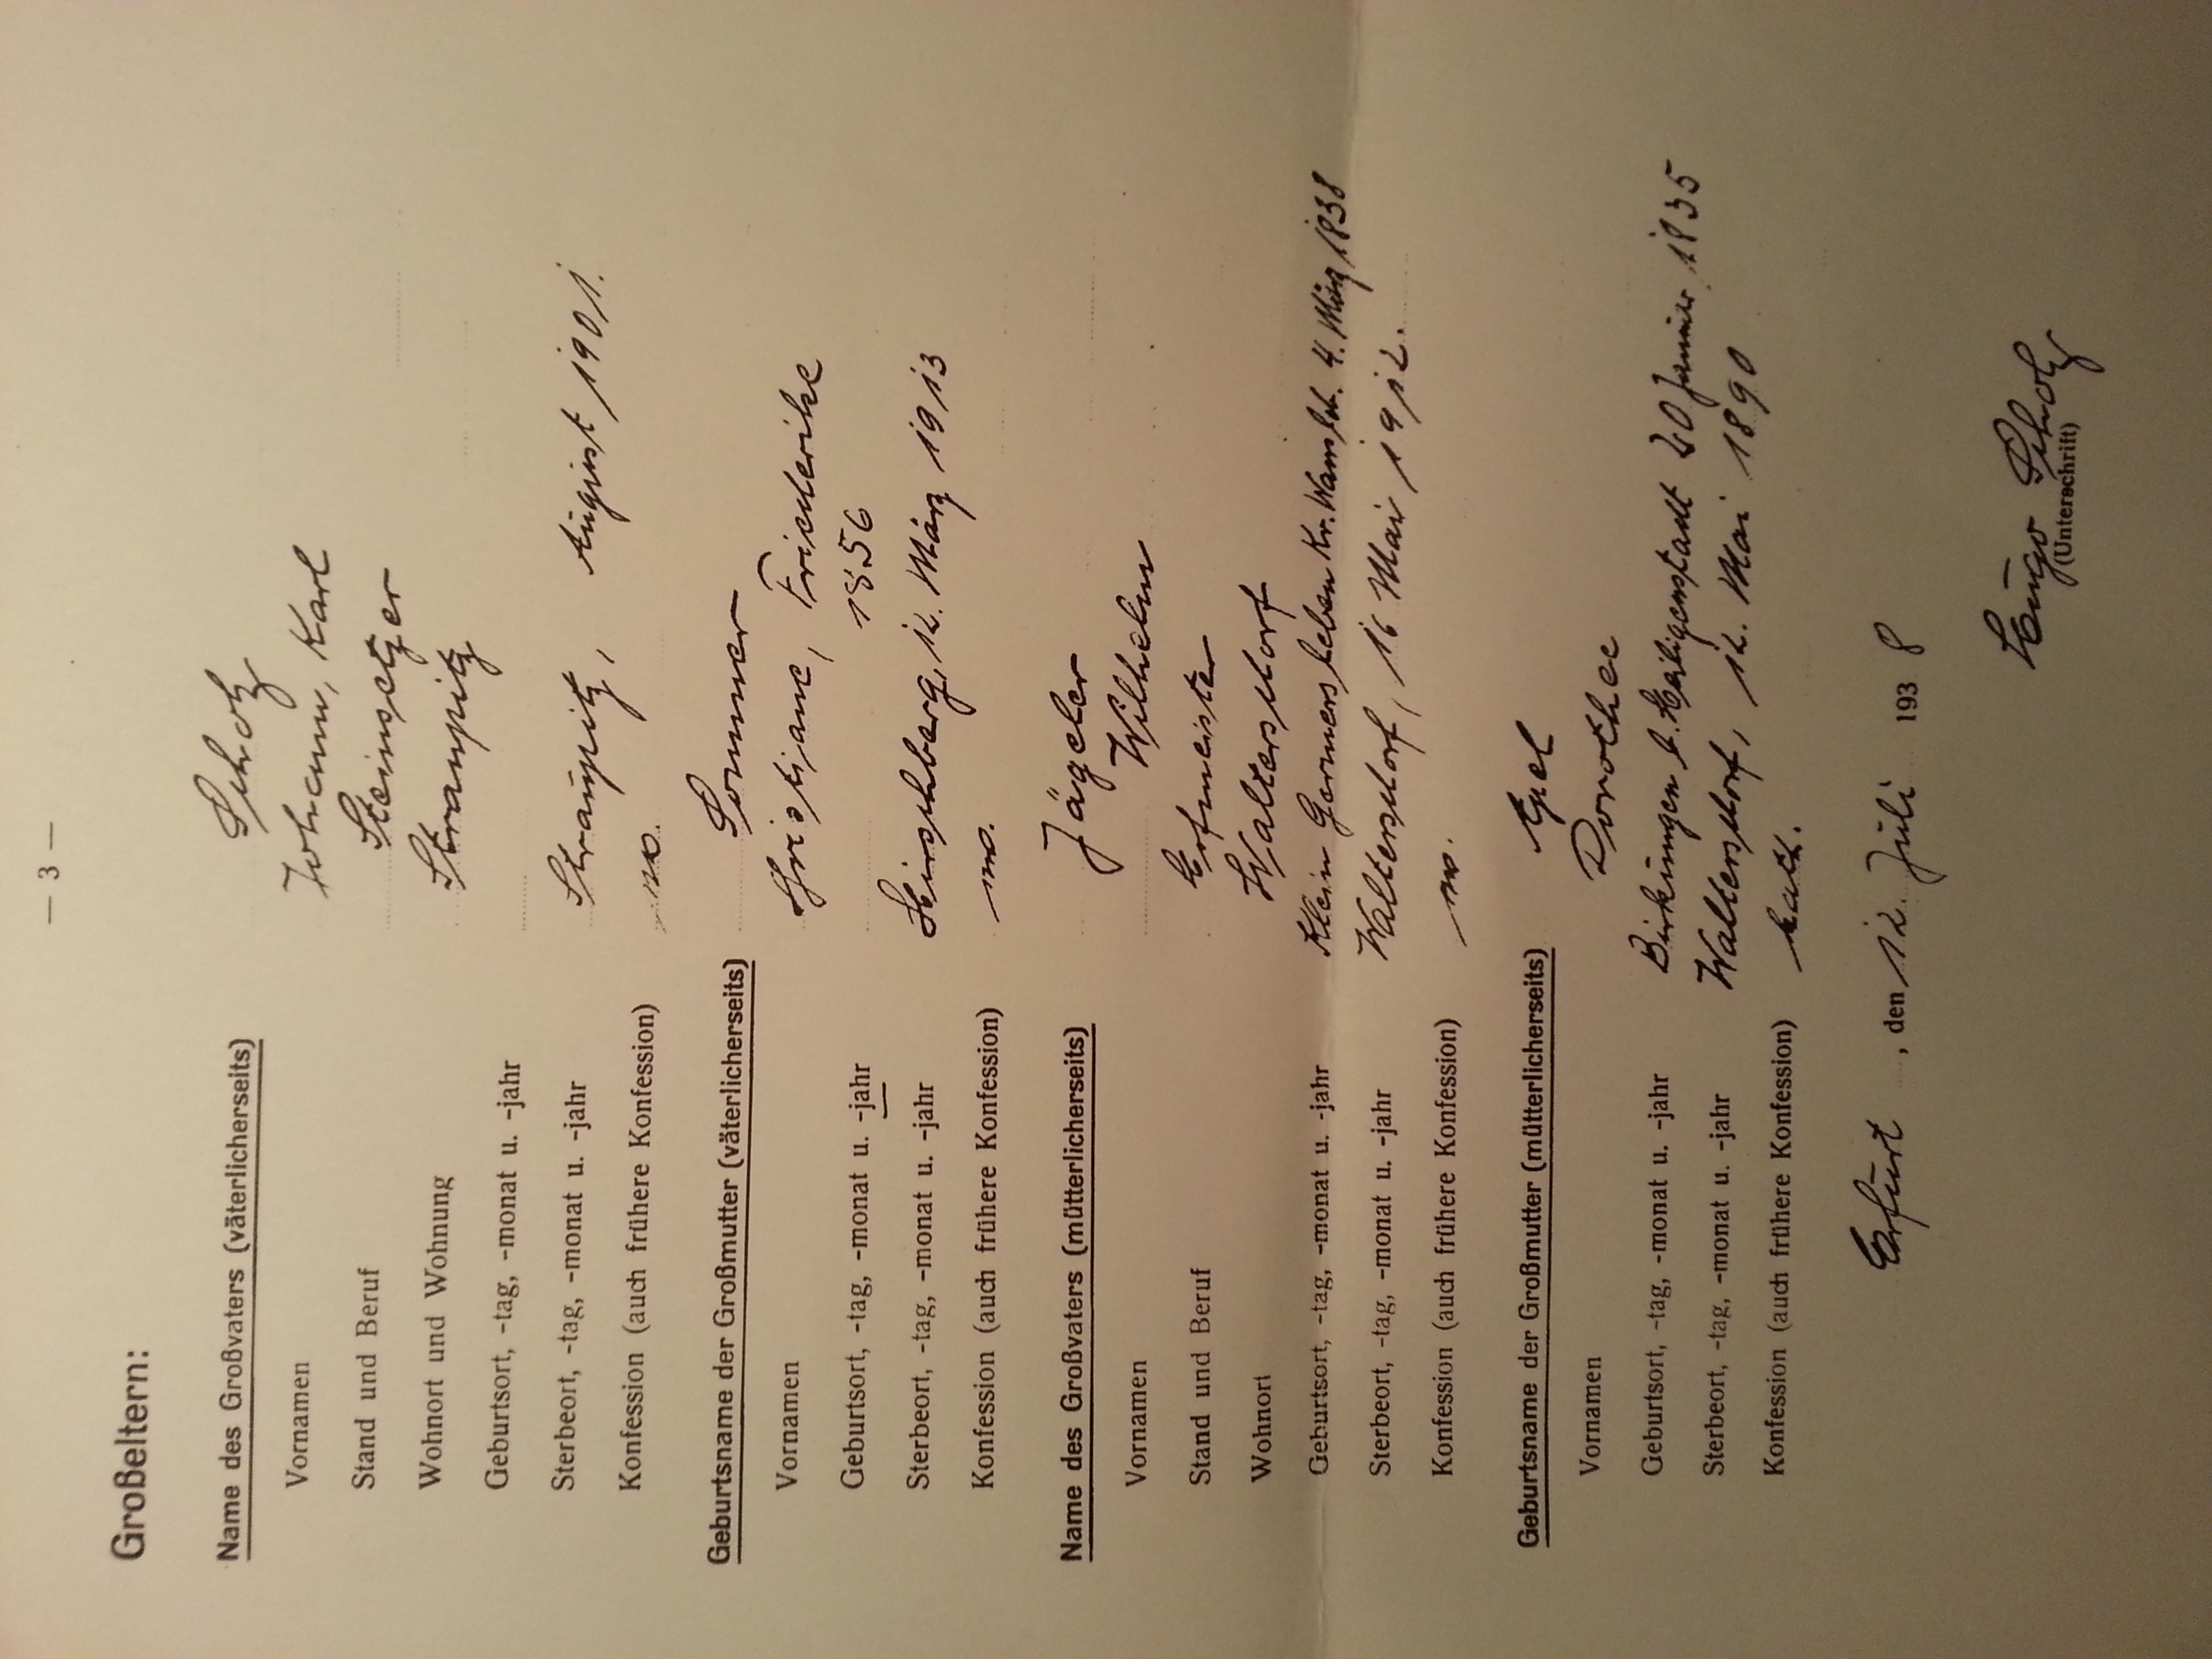 — 3 —
Großeltern:
Name des Großvaters (väterlicherseits) Scholz
Vornamen Johann, Karl
Stand und Beruf Steinsetzer
Wohnort und Wohnung Straupitz
Geburtsort, -tag, -monat u. -jahr
Sterbeort, -tag, -monat u. -jahr Straupitz, August 1901.
Konfession (auch frühere Konfession)
Geburtsname der Großmutter (väterlicherseits) Sommer
Vornamen Christiane, Friederike
Geburtsort, -tag, -monat u. -jahr 1856
Sterbeort, -tag, -monat u. -jahr Hirschberg, 12. März 1913
Konfession (auch frühere Konfession)
Name des Großvaters (mütterlicherseits) Jägeler
Vornamen Wilhelm
Stand und Beruf Hofmeister
Wohnort Waltersdorf
Geburtsort, -tag, -monat u. -jahr Klein Germersleben Kr. 4. März 1838
Sterbeort, -tag, -monat u. -jahr Waltersdorf, 16 Mai 1912.
Konfession (auch frühere Konfession)
Geburtsname der Großmutter (mütterlicherseits)
Vornamen Dorothee
Geburtsort, -tag, -monat u. -jahr Birkungen b. Heiligenstadt 20 Januar 1835
Sterbeort, -tag, -monat u. -jahr Waltersdorf, 12. Mai 1890
Konfession (auch frühere Konfession) kath.
Erfurt, den 12. Juli 1938
Hugo Scholz
(Unterschrift)